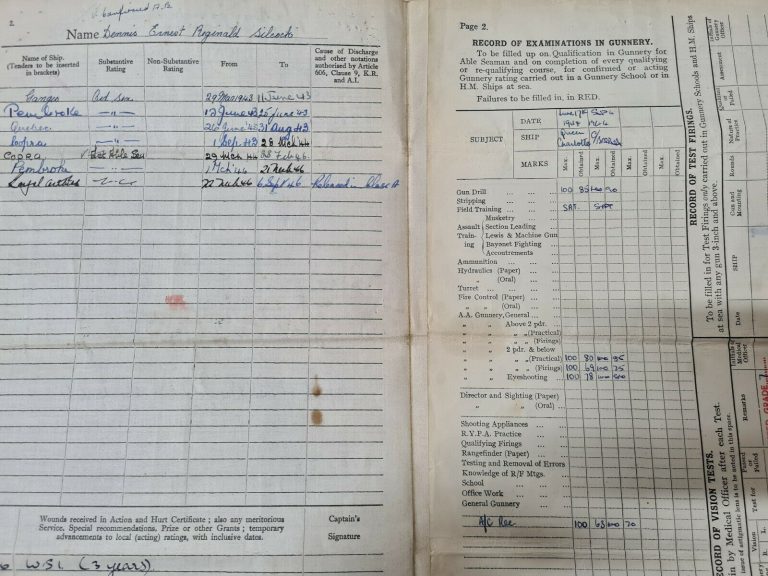 2.
Name Dennis Ernest Reginald Silcock
Name of Ship. (Tenders to be inserted in brackets)
Substantive Rating
Non-Substantive Rating
From
To
Cause of Discharge and other notations authorised by Article 606, Clause 9, K.R. and A.I.
Ganges Ord Sea 29 Mar 1943 11 June 43
Pembroke —"— 12 June 43 25 June 43
Quebec —"— 26 June 43 31 Aug 43
Copra —"— 1 Sep. 43 28 Mch 44
COPRA Able Sea 29 Mch 44 28 Feb 46
Pembroke —"— 1 Mch 46 21 Mch 46
22 Mch 46 6 Sept 46 Released in Class A
Wounds received in Action and Hurt Certificate ; also any meritorious Service, Special recommendations, Prize or other Grants ; temporary advancements to local (acting) ratings, with inclusive dates.
Captain's Signature
W.S.I. (3 years).
Page 2.
RECORD OF EXAMINATIONS IN GUNNERY.
To be filled up on Qualification in Gunnery for
Able Seaman and on completion of every qualifying
or re-qualifying course, for confirmed or acting
Gunnery rating carried out in a Gunnery School or in
H.M. Ships at sea.
Failures to be filled in, in RED.
SUBJECT
DATE June 17th 1944 Sept 1944
SHIP Queen Charlotte
MARKS Max. Obtained Max. Obtained Max. Obtained Max. Obtained Max. Obtained
Gun Drill 100 85 100 90
Stripping
Field Training SAT. SAT
Musketry
Assault Training
Section Leading
Lewis & Machine Gun
Bayonet Fighting
Accoutrements
Ammunition
Hydraulics (Paper)
" (Oral)
Turret
Fire Control (Paper)
" " (Oral)
A.A. Gunnery, General
" " Above 2 pdr.
" " " " (Practical)
" " " " (Firings)
" " 2 pdr. & below
" " " " (Practical) 100 80 100 95
" " " " (Firings) 100 69 100 75
" " Eyeshooting 100 78 100
Director and Sighting (Paper)
" " " (Oral)
Shooting Appliances
R.Y.P.A. Practice
Qualifying Firings
Rangefinder (Paper)
Testing and Removal of Errors
Knowledge of R/F Mtgs.
School
Office Work
General Gunnery
A/C Rec 100 63 100 70
RECORD OF TEST FIRINGS.
To be filled in for Test Firings only carried out in Gunnery Schools and H.M. Ships
at sea with any gun 3-inch and above.
Date
SHIP
Gun and Mounting
Rounds
Nature of Practice
Initials of Gunnery Officer
RECORD OF VISION TESTS.
in by Medical Officer after each Test.
of astigmatic lens is to be noted in this space.
Vision
Test
Passed or Failed
Remarks
Initials of Medical Officer
R.
L.